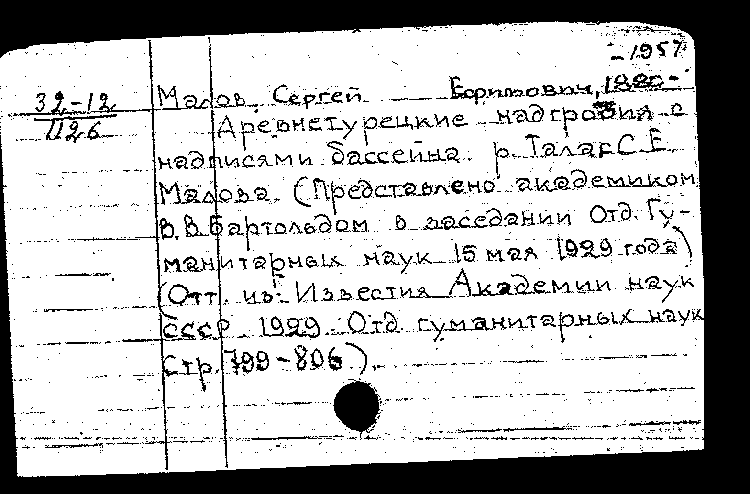 -1957
32-12 Малов, Сергей Ефимович, 1880-
1126 Древнетурецкие надгробия с
надписями бассейна р. Талас С.Е.
Малова. (Представлено академиком
В.В. Бартольдом в заседании Отд. Гу-
манитарных наук 15 мая 1929 года)
(Отт. из: Известия Академии наук
СССР. 1929. Отд. гуманитарных наук
Стр. 799-806).